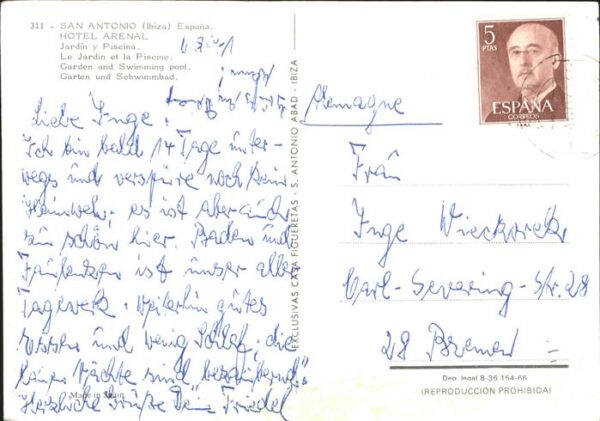 311 - SAN ANTONIO (Ibiza) España.
HOTEL ARENAL
Jardín y Piscina.
Le Jardin et la Piscine.
Garden and Swimming pool.
Garten und Schwimmbad.
Liebe Inge!
Ich bin bald 14 Tage unter-
wegs und verspüre noch kein
Heimweh, es ist aber auch
zu schön hier. Baden und
Faulenzen ist unser aller
Tagewerk. Weiterhin gutes
Essen und wenig Schlaf, die
Nächte sind "bezaubernd".
Herzliche Grüße Deine Friedel
Made in Spain
EXCLUSIVAS CASA FIGUERETAS - S. ANTONIO ABAD - IBIZA
5
PTAS
ESPAÑA
CORREOS
Alemagne
Frau
Inge Wieckhorst
Carl-Severing-Str. 28
28 Bremen
Dep. legal B-36.154-66
(REPRODUCCION PROHIBIDA)